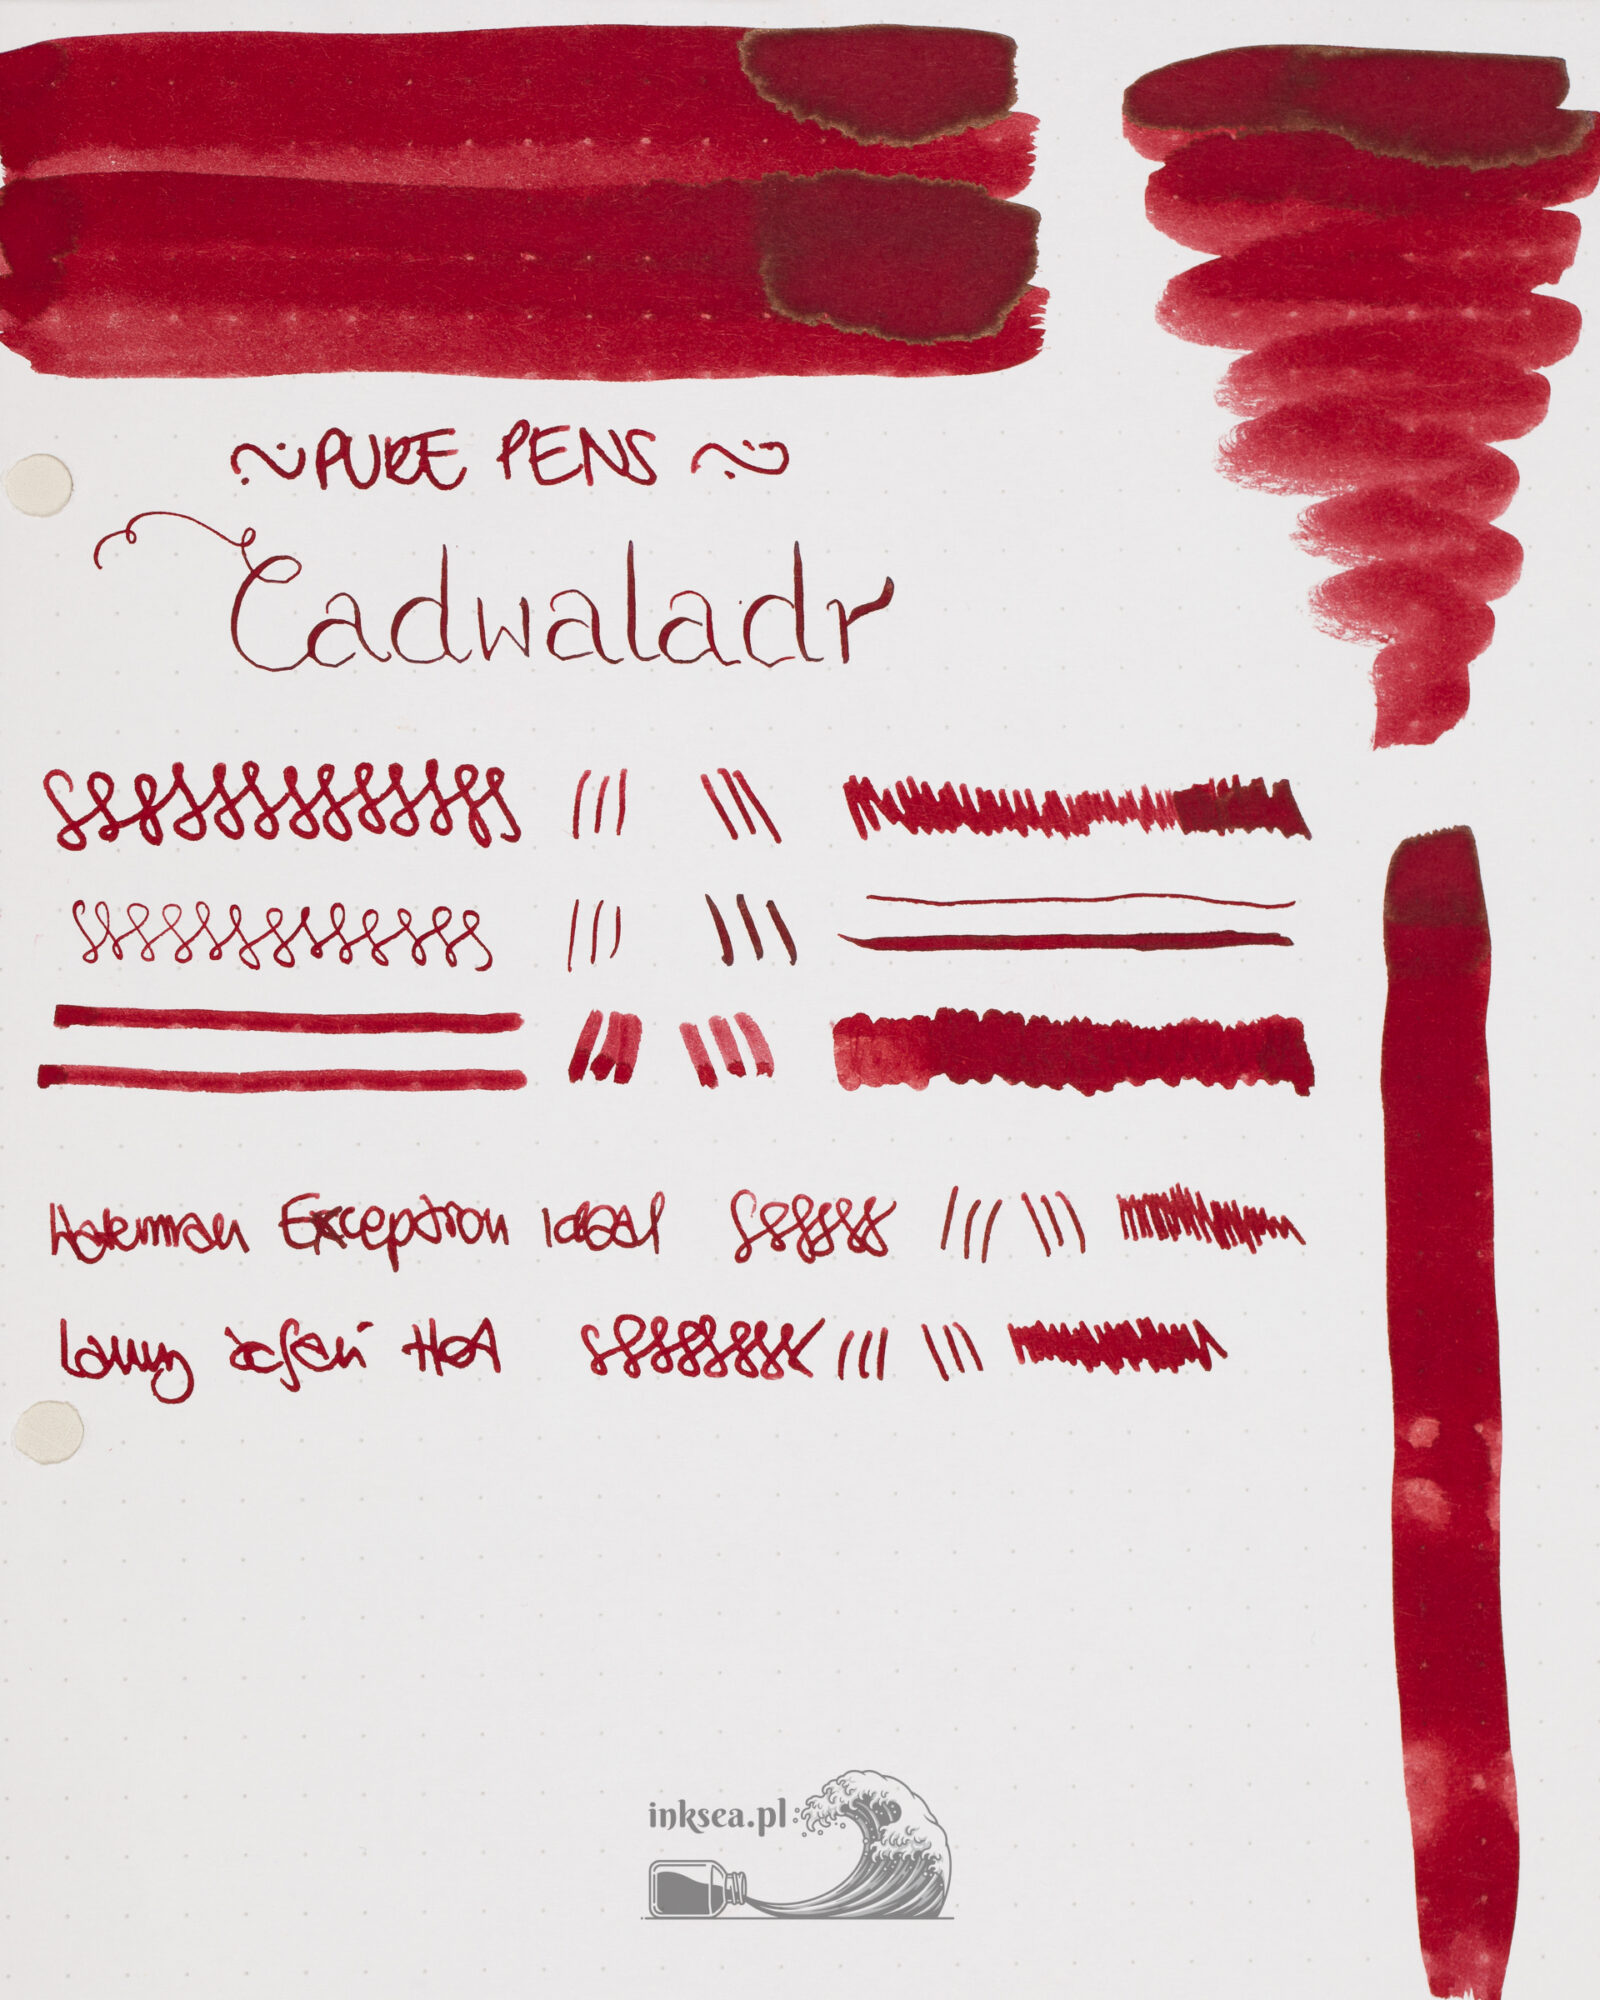 PURE PENS
Cadwaladr
Waterman Exception Ideal
Lamy Safari
inksea.pl